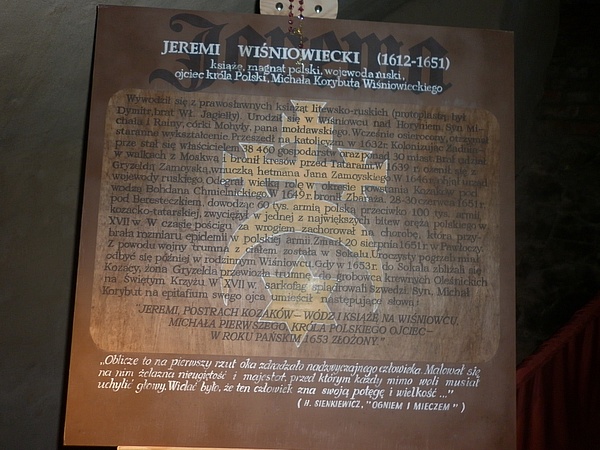 Jerema
JEREMI WIŚNIOWIECKI (1612-1651)
książę, magnat polski, wojewoda ruski,
ojciec króla Polski, Michała Korybuta Wiśniowieckiego
Wywodził się z prawosławnych książąt litewsko-ruskich (protoplastą był
Dymitr, brat Wł. Jagiełły). Urodził się w Wiśniowcu nad Horyniem. Syn Mi-
chała i Rainy, córki Mohyły, pana mołdawskiego. Wcześnie osierocony, otrzymał
staranne wykształcenie. Przeszedł na katolicyzm w 1632 r. Kolonizując Zadnie-
prze stał się właścicielem 38 460 gospodarstw oraz ponad 30 miast. Brał udział
w walkach z Moskwą i bronił kresów przed Tatarami. W 1639 r. ożenił się z
Gryzeldą Zamoyską, wnuczką hetmana Jana Zamoyskiego. W 1646 r. objął urząd
wojewody ruskiego. Odegrał wielką rolę w okresie powstania Kozaków pod
wodzą Bohdana Chmielnickiego. W 1649 r. bronił Zbaraża. 28-30 czerwca 1651 r.
pod Beresteczkiem, dowodząc 60 tys. armią polską przeciwko 100 tys. armii
kozacko-tatarskiej, zwyciężył w jednej z największych bitew oręża polskiego w
XVII w. W czasie pościgu za wrogiem zachorował na chorobę, która przy-
brała rozmiary epidemii w polskiej armii. Zmarł 20 sierpnia 1651 r. w Pawłoczy.
Z powodu wojny trumna z ciałem została w Sokalu. Uroczysty pogrzeb miał
odbyć się później w rodzinnym Wiśniowcu. Gdy w 1653 r. do Sokala zbliżali się
Kozacy, żona Gryzelda przewiozła trumnę do grobowca krewnych Oleśnickich
na Świętym Krzyżu. W XVII w. sarkofag splądrowali Szwedzi. Syn, Michał
Korybut na epitafium swego ojca umieścił następujące słowa:
"JEREMI, POSTRACH KOZAKÓW – WÓDZ I KSIĄŻĘ NA WIŚNIOWCU,
MICHAŁA PIERWSZEGO, KRÓLA POLSKIEGO OJCIEC –
W ROKU PAŃSKIM 1653 ZŁOŻONY."
„Oblicze to na pierwszy rzut oka zdradzało nadzwyczajnego człowieka. Malował się
na nim żelazna nieugiętość i majestat, przed którym każdy mimo woli musiał
uchylić głowy. Widać było, że ten człowiek zna swoją potęgę i wielkość..."
(H. SIENKIEWICZ, "OGNIEM I MIECZEM")